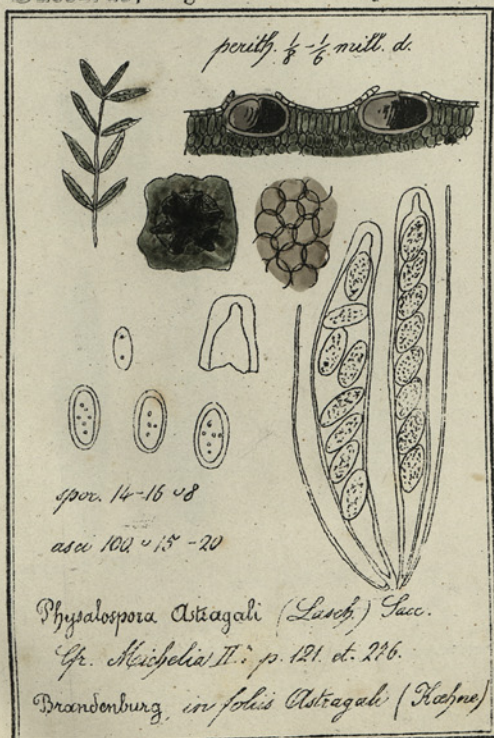 perith. 1/8 - 1/6 mill. d.
spor. 14-16 ∪ 8
asci 100 ∪ 15 - 20
Physalospora Astragali (Lasch.) Sacc.
Cfr. Michelia II: p. 121. et. 276.
Brandenburg, in foliis Astragali (Kœhne)